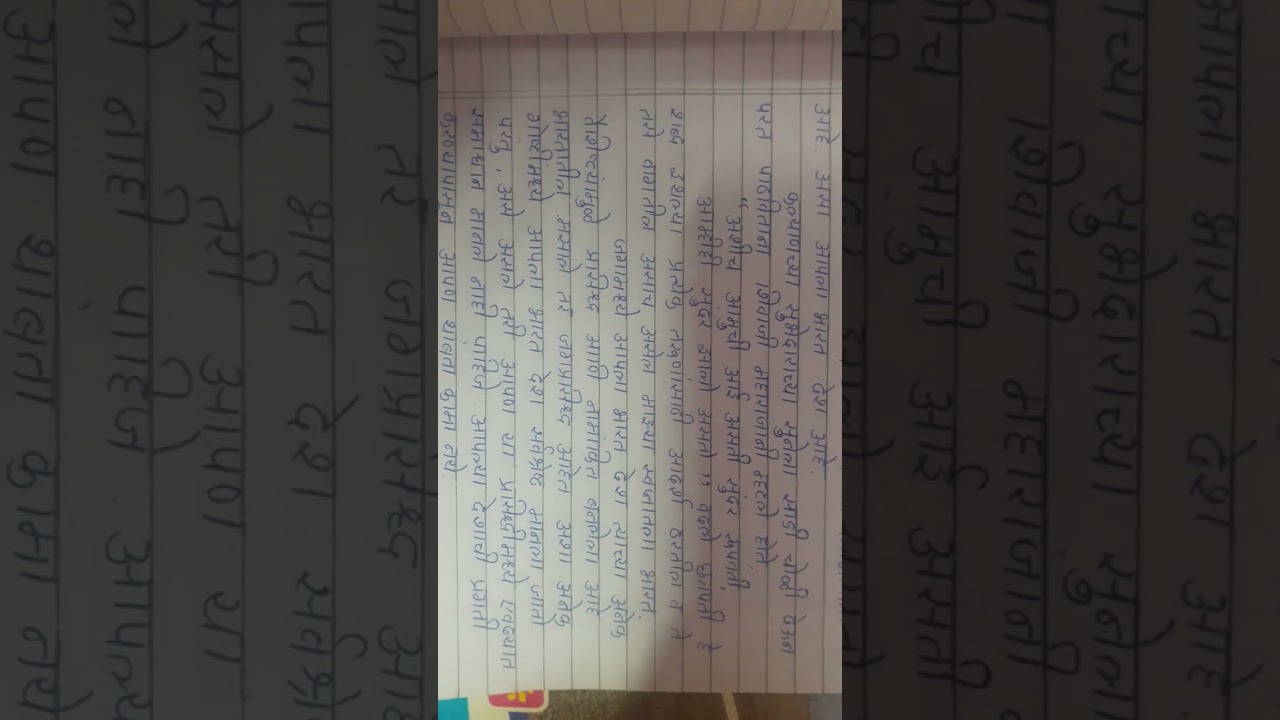 आहे. असा आपला भारत देश आहे.
कल्याणच्या सुभेदाराच्या सुनेला साडी चोळी देऊन
परत पाठविताना शिवाजी महाराजांनी म्हटले होते
"अशीच आमुची आई असती सुंदर रूपवती,
आम्हीही सुंदर झालो असतो" वदले छत्रपती हे
शब्द उद्याच्या प्रत्येक तरुणांसाठी आदर्श ठरतील व ते
तसे वागतील असाच असेल माझ्या स्वप्नातला भारत.
जगामध्ये आपला भारत देश त्याच्या अनेक
वैशिष्ट्यांमुळे प्रसिद्ध आणि नामांकित बनलेला आहे
भारतातील मसाले तर जगप्रसिद्ध आहेत अशा अनेक
गोष्टींमध्ये आपला भारत देश सर्वश्रेष्ठ मानला जातो.
परंतु, असे असले तरी आपण या प्रसिद्धीमध्ये एवढ्यात
समाधान मानले नाही पाहिजे आपल्या देशाची प्रगती
करण्यापासून आपण थांबता कामा नये.